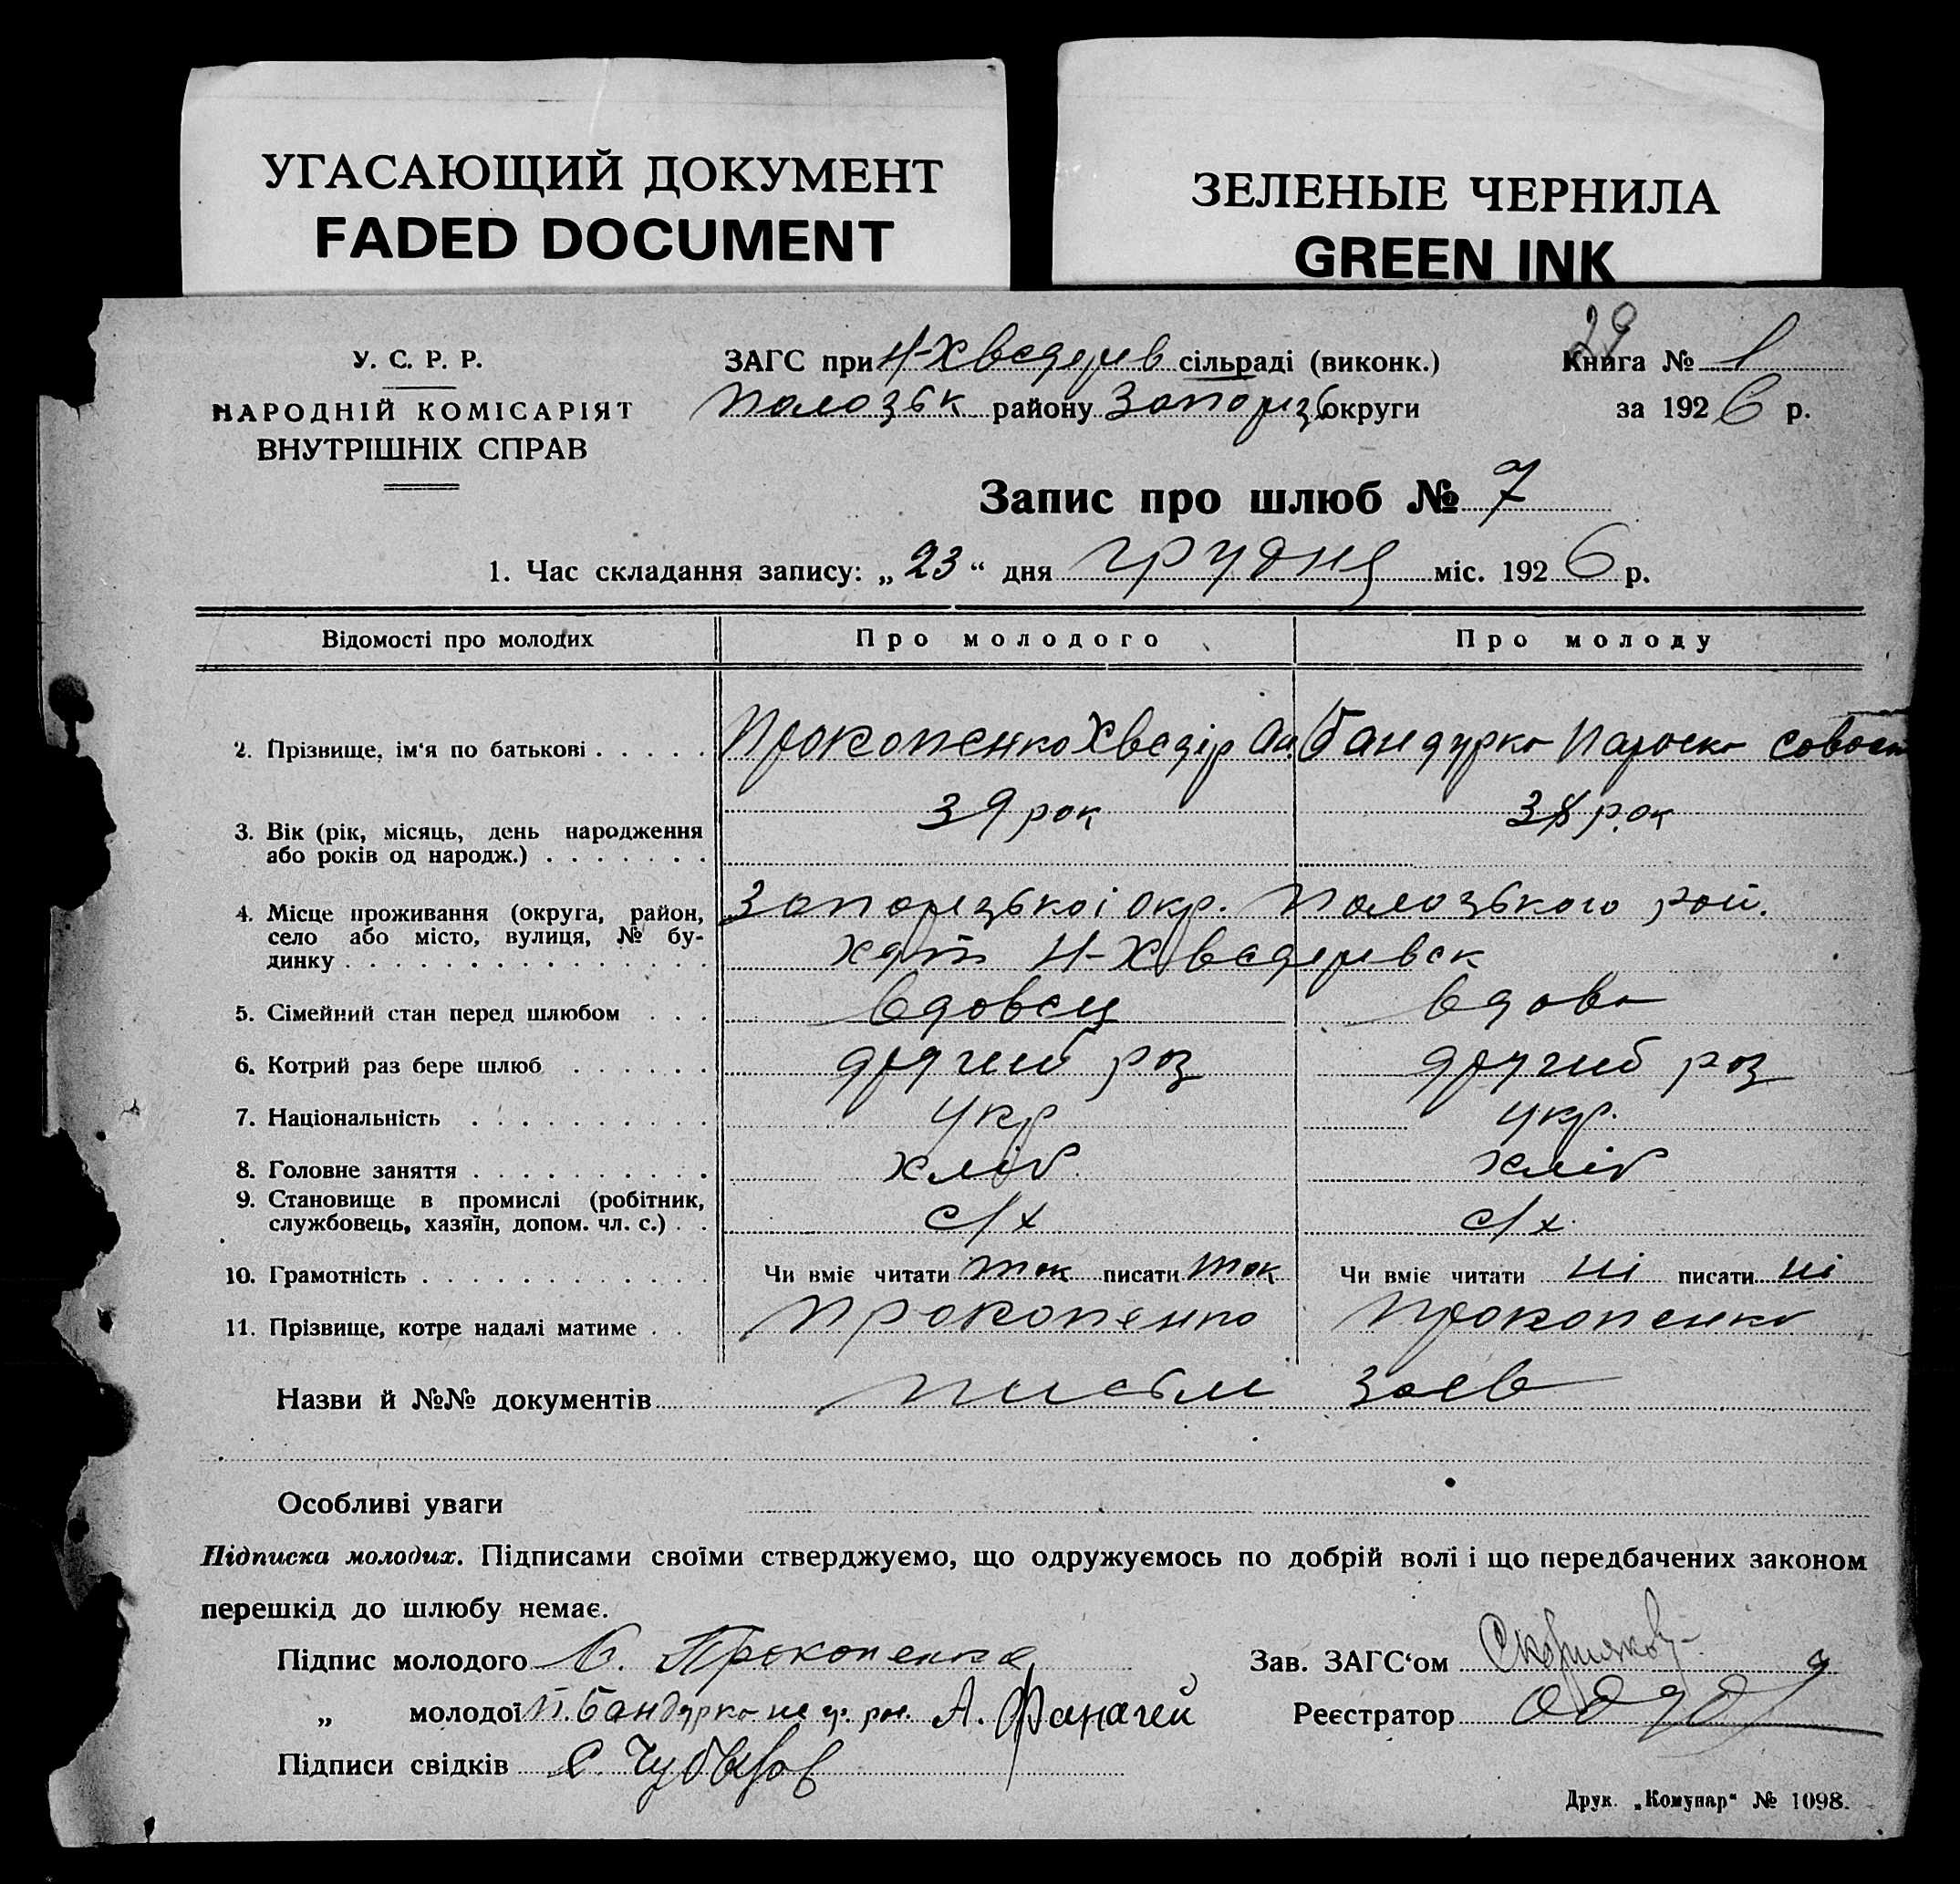 УГАСАЮЩИЙ ДОКУМЕНТ
FADED DOCUMENT
ЗЕЛЕНЫЕ ЧЕРНИЛА
GREEN INK
29
У. С. Р. Р.
НАРОДНІЙ КОМІСАРІЯТ
ВНУТРІШНІХ СПРАВ
ЗАГС при Н-Хведерів сільраді (виконк.)
Полозьк району Запоріз округи
Книга № 1
за 1926 р.
Запис про шлюб № 7
1. Час складання запису: „23“ дня грудня міс. 1926 р.
Відомості про молодих Про молодого Про молоду
2. Прізвище, ім'я по батькові Прокопенко Хведір Бандурка Параска Савост
3. Вік (рік, місяць, день народження або років од народж.) 39 рок 38 рок
4. Місце проживання (округа, район, село або місто, вулиця, № будинку Запорізької окр. Полозького рай.
Н-Хведеревск
5. Сімейний стан перед шлюбом вдовец вдова
6. Котрий раз бере шлюб другий раз другий раз
7. Національність укр укр.
8. Головне заняття хліб хліб
9. Становище в промислі (робітник, службовець, хазяїн, допом. чл. с.) с/х с/х
10. Грамотність Чи вміє читати так писати так Чи вміє читати ні писати ні
11. Прізвище, котре надалі матиме Прокопенко Прокопенко
Назви й №№ документів письм заяв
Особливі уваги
Підписка молодих. Підписами своїми стверджуємо, що одружуємось по добрій волі і що передбачених законом
перешкід до шлюбу немає.
Підпис молодого Прокопенка
Зав. ЗАГС‘ом
„ молодої П. Бандурка А. Фанагей
Реєстратор
Підписи свідків
Друк. „Комунар“ № 1098.